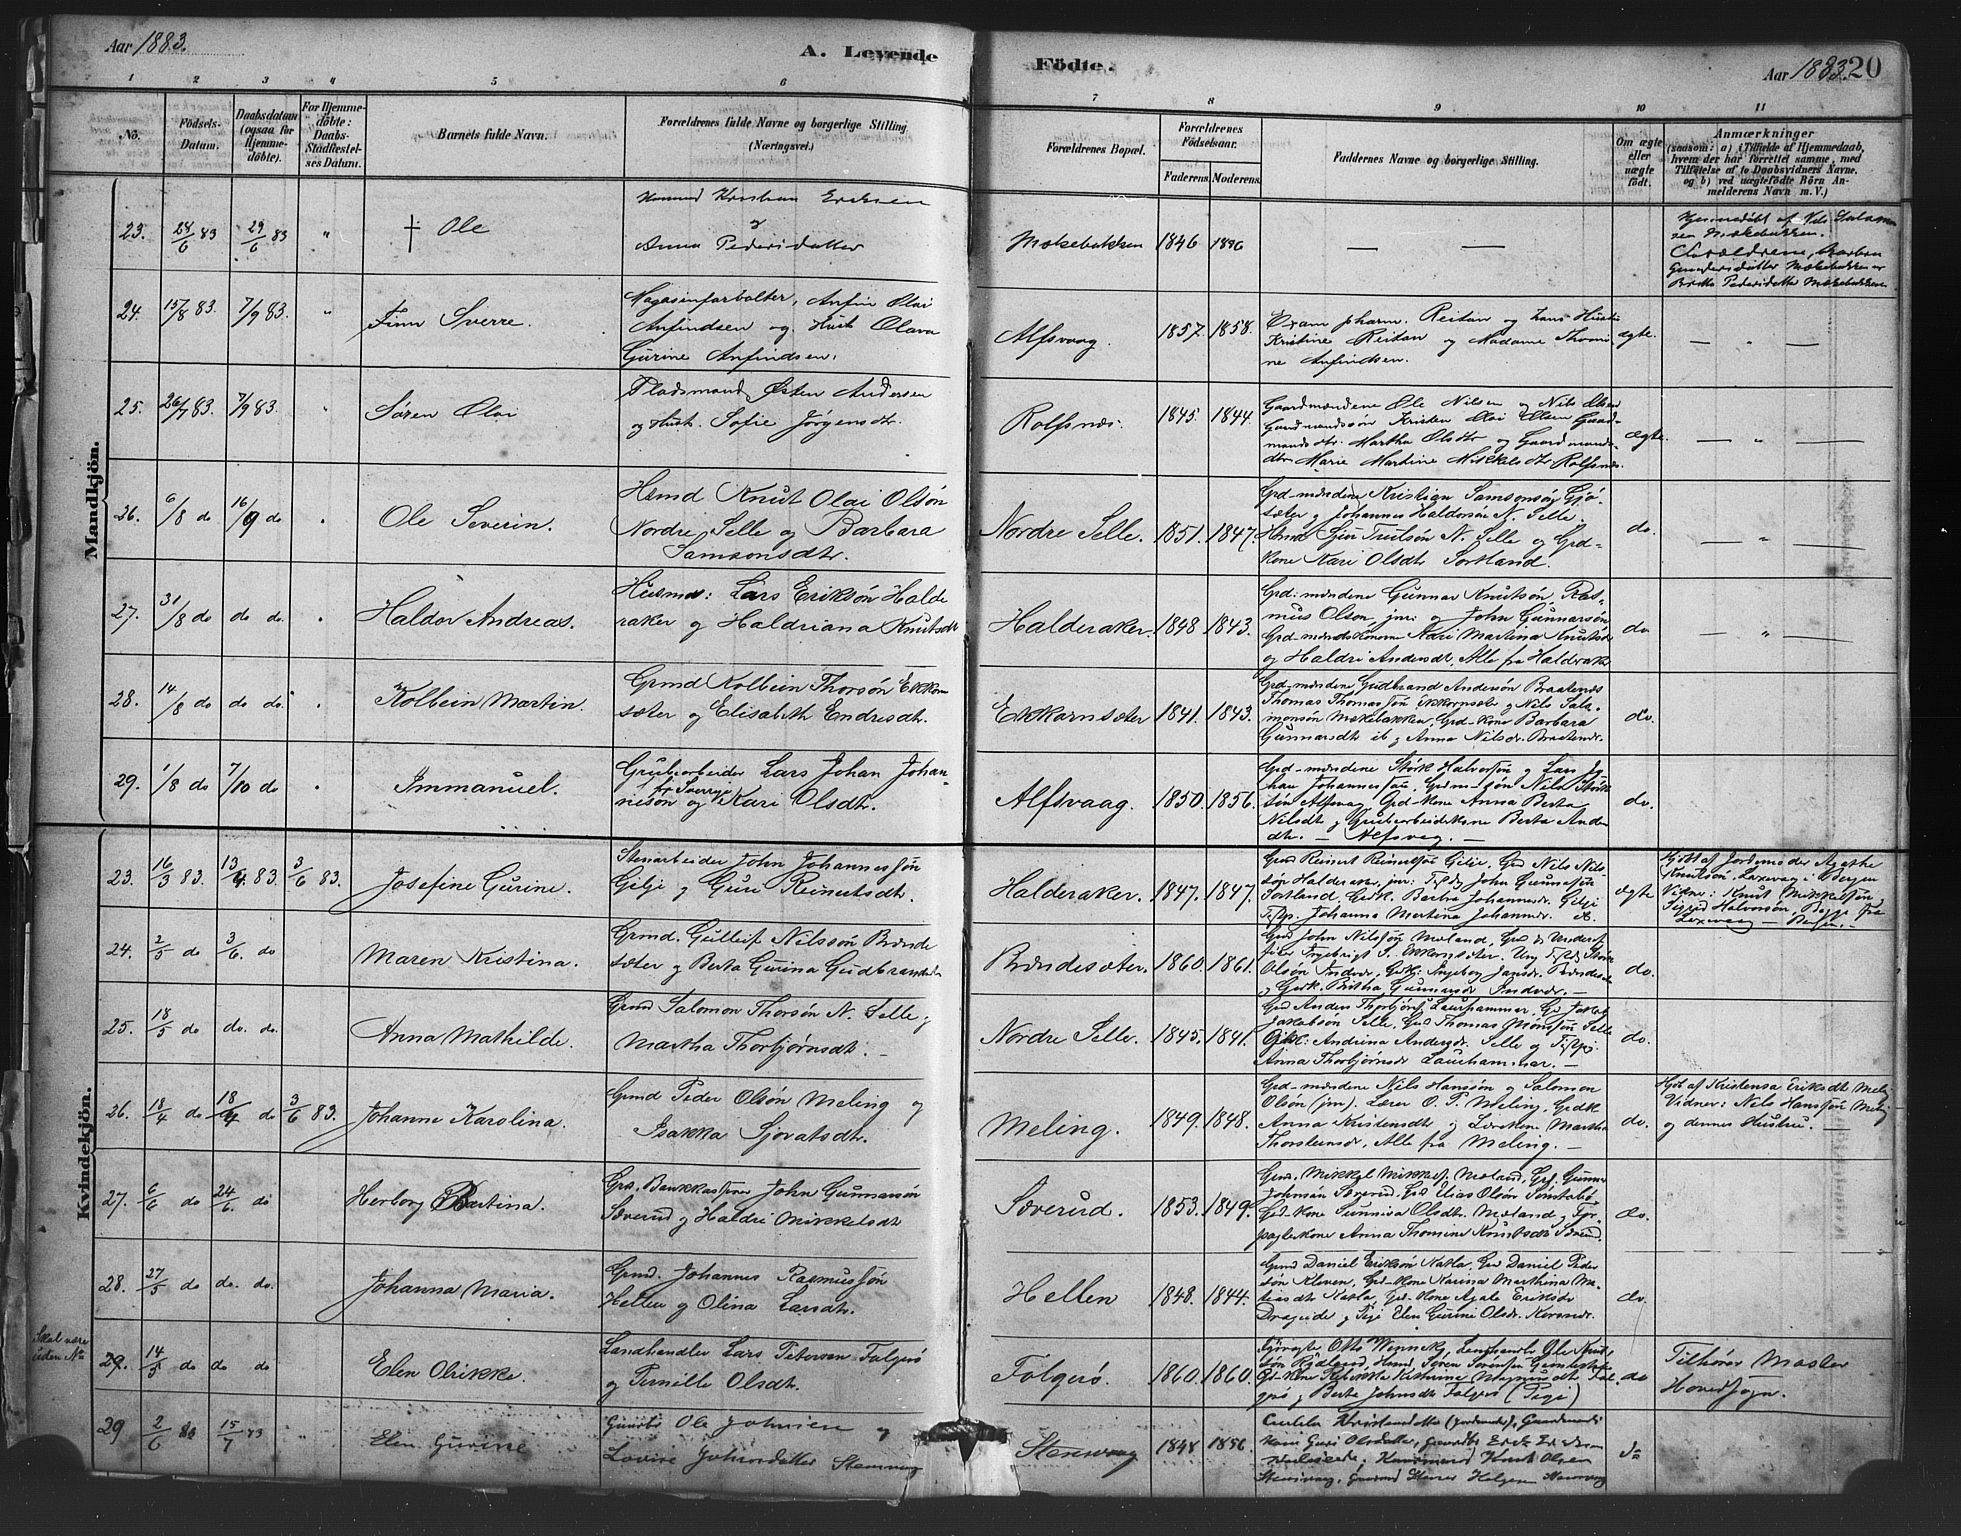 Aar 1883.
A. Levende
Födte.
Aar 1883. 20
1 2 3 4 5 6 7 8 9 10 11
No.
Födsels-
Datum.
Daabsdatum
(ogsaa for
Hjemme-
döbte).
For Hjemme-
döbte:
Daabs-
Stadfæstel-
ses Datum.
Barnets fulde Navn.
Forældrenes fulde Navne og borgerlige Stilling
(Næringsvei.)
Forældrenes Bopæl.
Forældrenes
Födselsaar.
Faderens. Moderens.
Faddernes Navne og borgerlige Stilling.
Om ægte
eller
uægte
födt.
Anmærkninger
(saasom: a) i Tilfælde af Hjemmedaab,
hvem der har forrettet samme, med
Tilföielse af to Daabsvidners Navne.
og b) ved uægtefödte Börn An-
melderens Navn m. V.)
Mandkjön.
23. 28/6 83 29/6 83 " † Ole
Husmand Kristian Eriksen
og
Anna Pedersdatter
Mækebakken 1846 — —
Hjemmedøbt af Nils Salamon
sen Mækebakken.
Forældrene, Barbra
Gundersdatter Mækebakken
Britta Pedersdatter Mækebakken
24. 15/8 83. 7/9 83. " Finn Sverre.
Magasinforvalter, Anfin Olai
Anfindsen og Hust. Olava
Gurine Anfindsen.
Alfsvaag. 1857. 1858.
Exam. pharm. Reitan og hans Hustr.
Kristine Reitan og Madame Thomi
ne Anfindsen.
ægte. — " —
25. 26/7 83. 7/9 83. " Søren Olai
Pladsmand Østen Andersen
og Hust. Sofie Jörgensdtr.
Rolfsnæs. 1845. 1844.
Gaardmændene Ole Nilsen og Nils Olsen
Gaardmandssön Kristen Olai Olsen Gaard-
mandsdtr. Martha Olsdtr og Gaardmands-
dtr. Marie Martine Mikkelsdtr Rolfsnæs.
ægte. — " —
26. 6/8 do 16/9 do " Ole Severin.
Hsmd Knut Olai Olsön
Nordre Selle og Barbara
Samsonsdtr.
Nordre Selle. 1851. 1847.
Grd-mændene Kristian Samsonsön Gjö-
sæter og Johannes Haldorsön N. Selle,
N. Selle og Grd-
kone Kari Olsdtr Sortland.
do. — " —
27. 31/8 do do do. " Haldor Andreas.
Husmd: Lars Eriksön Halde
raker og Haldriana Knutsdtr
Halderaker. 1848 1843.
Grd: mændene Gunnar Knutsön Ras-
mus Olson jmr: og John Gunnarsön
Grd-mandskonerne Kari Martina Knutsdr
og Haldri Andersdt, Alle fra Haldraker
do — " —
28. 14/8 do do do. " Kolbein Martin.
Grmd Kolbein Thorsön Ekkorn
sæter og Elisabeth Endresdtr.
Ekkornsæter. 1841. 1843.
Grd-mændene Gudbrand Andersön Braatenæs
Thomas Thomassön Ekkornsæter og Nils Salo-
monsön Mækebakken, Grd-kone Barbara
Gunnarsdtr ib og Anna Nilsdr. Braatenæs.
do.
29. 1/8 do 7/10 do " Immanuel.
Grubearbeider Lars Johan Johan-
fr Sverige
nesön og Kari Olsdtr.
Alfsvaag. 1850. 1856.
Grd-mændene Störk Halvorsön og Lars Jo-
han Johannessön, Grdm-sön Nils Störk-
sön Alfsvaag, Grd-kone Anna Berta
Nilsdtr og Grubearbeiderkone Berta Anders
dtr. — Alfsvag. —
do.
Kvindekjön.
23. 16/3 83. 13/4 83. 3/6 83. Josefine Gurine.
Stenarbeider John Johannessön
Gilje og Guri Reinertsdtr.
Halderaker. 1847. 1847.
Grd Reinert Reinertsön Gilje, Grd Nils Nils-
sön Halderaker, jmr: John Gunnarsön
Sortland, Grdk. Bertha Johannesdr. Gilje
Johanna Martina Johannesdr. ib.
ægte
Hjdbt af Jordemoder Agathe
Knutsön, Laxevaag i Bergen
Vidner: Knut Mikkelssön
Sigrid Halvorsön, Begge fra
Laxevaag — Bergen. —
24. 2/5 do 3/6. do Maren Kristina.
Grmd. Gulleif Nilssön Brænde
sæter og Berta Gurina Gudbrandsdr
Brændesæter. 1860. 1861.
Grd John Nilssön Moland, Grd
Ingebrigt S. Ekkornsæter. Ung
Olsön Indvær, Grdk: Ingeborg Jansdr. Brændesæ.
og Grdk. Britha Gunnarsdr Indvær. —
do.
25. 18/5 do do. do. Anna Mathilde.
Grmd Salomon Thorsön N. Selle og
Martha Thorbjørnsdtr.
Nordre Selle. 1845. 1841.
Grd Anders Thorbjörns. Laurhammer, Gd Jakob
Jakobsön Selle, Grd Thomas Monssön Selle
Grdk: Andrina Andersdr. Selle og
Anna Thorbjörnsdr Laurhammer. —
do.
26. 18/4 do 18/4 do 3/6 83. Johanne Karolina.
Grmd Peder Olsön Meling og
Isakka Sjovatsdtr.
Meling. 1849. 1848.
Grd-mændene Nils Hansön og Salomon
Olsön (jmr). Lærer O. P. Meling, Grdk
Anna Kristensdtr og Lærekone Martha
Thorsteinsdr, Alle fra Meling. —
do.
Hjdbt af Kristensa Eriksdt Meling
Vidner: Nils Hanssön Melg
og dennes Hustru. —
27. 6/6 do 24/6. do Herborg Bertina.
John Gunnarsön
Sæverud og Haldri Mikkelsdtr
Sæverud. 1853. 1849.
Grd. Mikkel Mikkels. Moland, Gd. Gunnar
Johnsön Sæverud. Grd Elias Olsön Sönstabö
Grd-kone Sunniva Olsdtr. Moland og
kone Anna Thomine Knutsdtr Sæverud.
do.
28. 27/5 do do. do. Johanna Maria.
Grmd. Johannes Rasmussön
Hellen og Olina Larsdtr.
Hellen 1848. 1844.
Grmd Daniel Eriksön Katla, Grd Daniel Peder
sön Kleven, Grd-kone Karina Marthina Ma-
tiasdtr Katla, Grd-kone Agate Eriksdr
Drageide og Pige Elen Gurine Olsdr.
do.
Skal være
uden No
29. 14/5 do do do Elen Olrikke.
Landhandler Lars Petersen Folgerö
og Pernille Olsdtr.
Folgerö. 1860. 1860.
Otto Wennek, Landhandler Ole Knut-
sön Rydland, Sören Sörensön
Gd-kone Rebekka Kistine Magnusdtr Fol-
gerö, og Berte Johnsdtr Folgerö (Pige)
do
Tilhörer Moster
Hovedsogn.
29 2/6 83 15/7 83 " Elen Gurine
Ole Johnsen og
Lovise Johnsdatter Stensvaag
Stensvaag 1848 1856.
Kristensdatter (Jordmoder), Gaardmands-
kone Guri Olsdatter, Erik Eriksen
Knut Olsen
Stensvaag, Helgesen Stensvaag
do